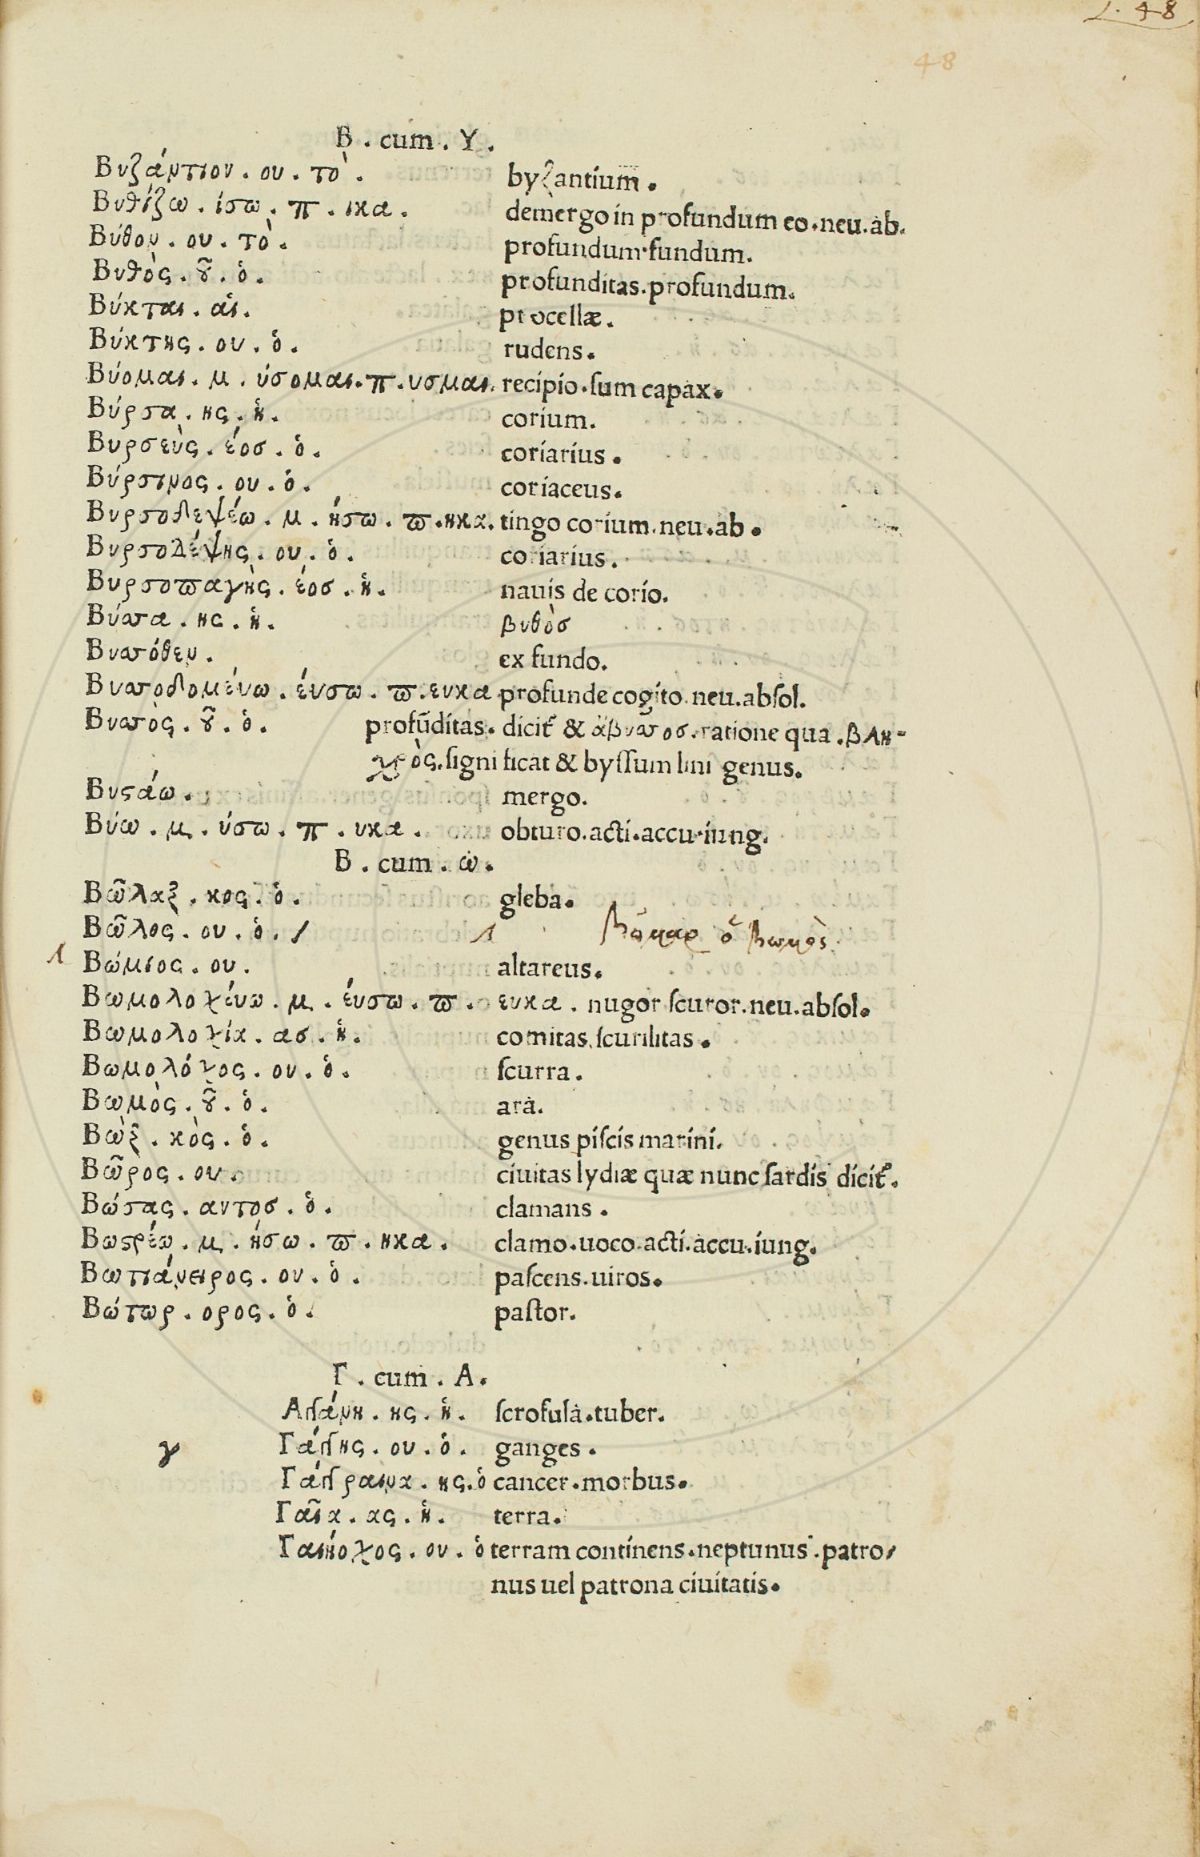 48
48
B . cum . Y .
Βυζάντιον . ου . τὸ . byzantium .
Βυθίζω . ίσω . π . ικα . demergo in profundum eo . neu . ab .
Βύθον . ου . τὸ . profundum . fundum .
Βυθὸς . οῦ . ὁ . profunditas . profundum .
Βύκται . αἱ . procellæ .
Βύκτης . ου . ὁ . rudens .
Βύομαι . μ . ύσομαι . π . υσμαι . recipio . sum capax .
Βύρσα . ης . ἡ . corium .
Βυρσεὺς . έοσ . ὁ . coriarius .
Βύρσινος . ου . ὁ . coriaceus .
Βυρσοδεψέω . μ . ήσω . π . ηκα . tingo corium . neu . ab .
Βυρσολέψης . ου . ὁ . coriarius .
Βυρσοπαγὴς . έοσ . ἡ . nauis de corio .
Βύσσα . ης . ἡ . βυθὸσ
Βυσσόθεν . ex fundo .
Βυσσοδομένω . ένσω . π . ευκα profunde cogito . neu . absol .
Βυσσὸς . οῦ . ὁ . profūditas . dicit & ἀβυσσοσ . ratione qua . βλη-
χρὸς . significat & byssum lini genus .
Βυστάω . mergo .
Βύω . μ . ύσω . π . υκα . obturo . acti . accu . iung .
B . cum . ω .
Βῶλαξ . κος . ὁ . gleba .
Βῶλος . ου . ὁ . /
Βώμιος . ου . altareus .
Βωμολοχένω . μ . ένσω . π . ευκα . nugor scuror . neu . absol .
Βωμολοχία . ασ . ἡ . comitas . scurilitas .
Βωμολόχος . ου . ὁ . scurra .
Βωμὸς . οῦ . ὁ . ara .
Βὼξ . κὸς . ὁ . genus piscis marini .
Βῶρος . ου . ciuitas lydiæ quæ nunc sardis dicit .
Βώσας . αντοσ . ὁ . clamans .
Βωστρέω . μ . ήσω . π . ηκα . clamo . uoco . acti . accu . iung .
Βωτιάνειρος . ου . ὁ . pascens . uiros .
Βώτωρ . ορος . ὁ . pastor .
Γ . cum . A .
Αγγάνη . ης . ἡ . scrofula . tuber .
γ Γάγγης . ου . ὁ . ganges .
Γάγγραινα . ης . ὁ cancer . morbus .
Γαῖα . ας . ἡ . terra .
Γαιήοχος . ου . ὁ terram continens . neptunus . patro/
nus uel patrona ciuitatis .